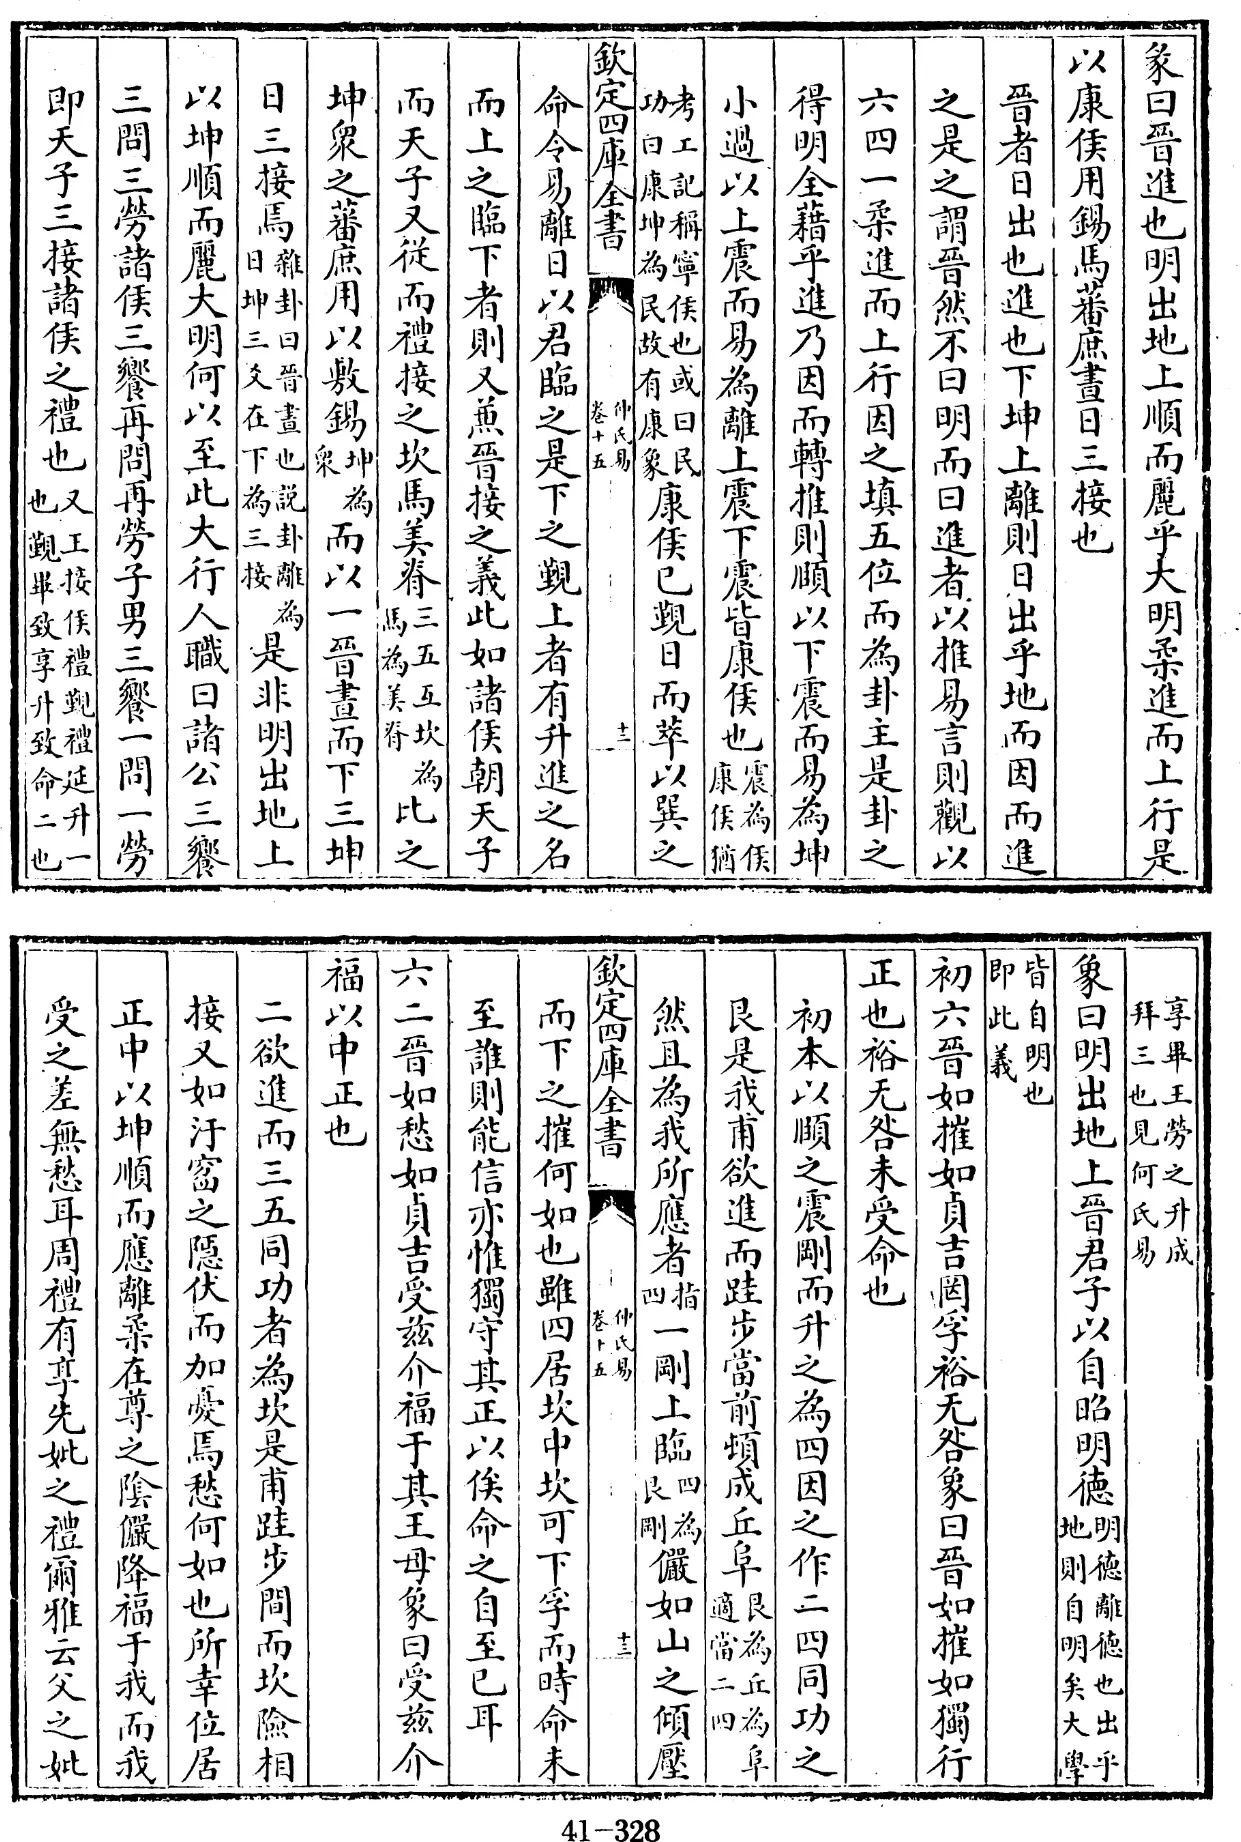 彖曰晉進也明出地上順而麗乎大明柔進而上行是
以康侯用錫馬蕃庶晝日三接也
晉者日出也進也下坤上離則日出乎地而因而進
之是之謂晉然不曰明而曰進者以推易言則觀以
六四一柔進而上行因之填五位而為卦主是卦之
得明全藉乎進乃因而轉推則頤以下震而易為坤
小過以上震而易為離上震下震皆康侯也震為侯康侯猶
考工記稱寧侯也或曰民功曰康坤為民故有康象康侯已覲日而萃以巽之
欽定四庫全書
仲氏易
卷十五
十二
命令易離日以君臨之是下之覲上者有升進之名
而上之臨下者則又兼晉接之義此如諸侯朝天子
而天子又從而禮接之坎馬美脊三五互坎為馬為美脊比之
坤衆之蕃庶用以敷錫坤為衆而以一晉晝而下三坤
日三接焉雜卦曰晉晝也説卦離為日坤三爻在下為三接是非明出地上
以坤順而麗大明何以至此大行人職曰諸公三饗
三問三勞諸侯三饗再問再勞子男三饗一問一勞
即天子三接諸侯之禮也又王接侯禮覲禮延升一也覲畢致享升致命二也
享畢王勞之升成拜三也見何氏易
象曰明出地上晉君子以自昭明德明德離德也出乎地則自明矣大學
皆自明也即此義
初六晉如摧如貞吉罔孚裕无咎象曰晉如摧如獨行
正也裕无咎未受命也
初本以順之震剛而升之為四因之作二四同功之
艮是我甫欲進而跬步當前頓成丘阜艮為丘為阜適當二四
然且為我所應者指四一剛上臨四為艮剛儼如山之傾壓
欽定四庫全書
仲氏易
卷十五
十三
而下之摧何如也雖四居坎中坎可下孚而時命未
至誰則能信亦惟獨守其正以俟命之自至已耳
六二晉如愁如貞吉受兹介福于其王母象曰受兹介
福以中正也
二欲進而三五同功者為坎是甫跬步間而坎險相
接又如汙窞之隠伏而加憂焉愁何如也所幸位居
正中以坤順而應離柔在尊之陰儼降福于我而我
受之差無愁耳周禮有享先妣之禮爾雅云父之妣
41-328